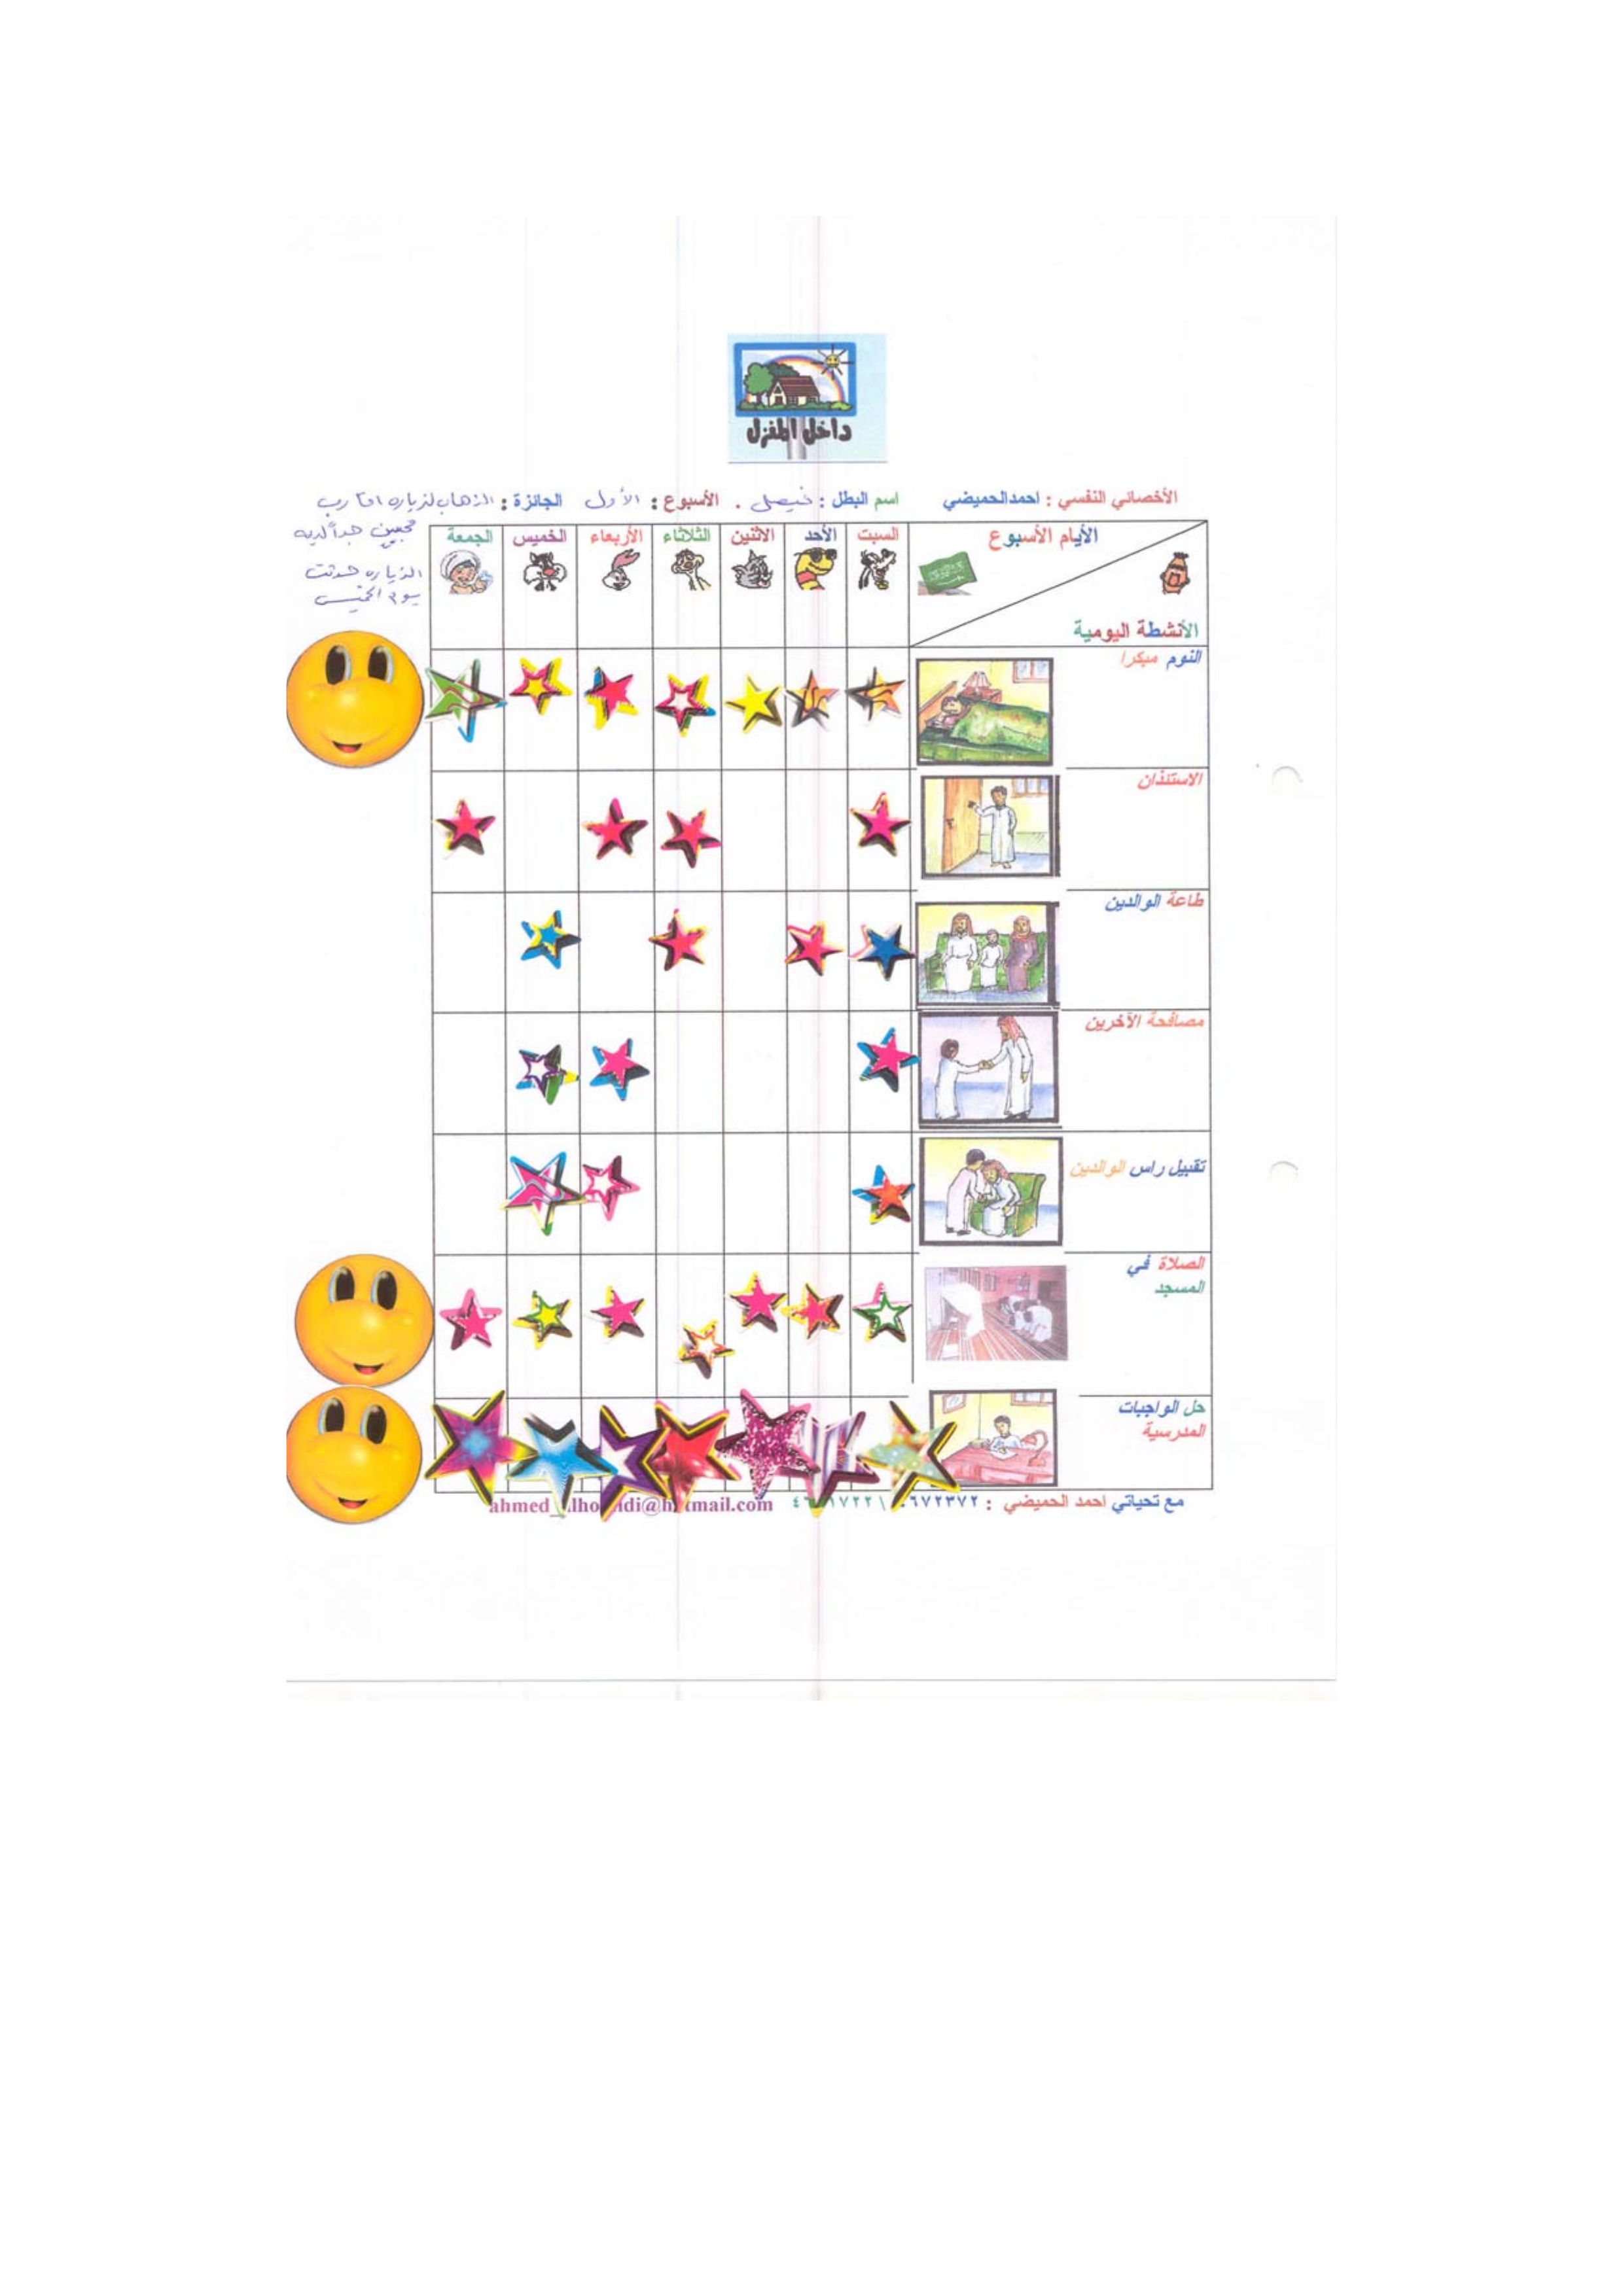 داخل المنزل
الأخصائي النفسي : احمدالحميضي اسم البطل : فيصل . الأسبوع : الأول الجائزة : الذهاب لزيارة اقارب
محببين جداً لديه
الزياره حدثت
يوم الخميس
الأيام الأسبوع السبت الأحد الاثنين الثلاثاء الأربعاء الخميس الجمعة
الأنشطة اليومية
النوم مبكرا
الاستئذان
طاعة الوالدين
مصافحة الآخرين
تقبيل راس الوالدين
الصلاة في
المسجد
حل الواجبات
المدرسية
مع تحياتي احمد الحميضي :